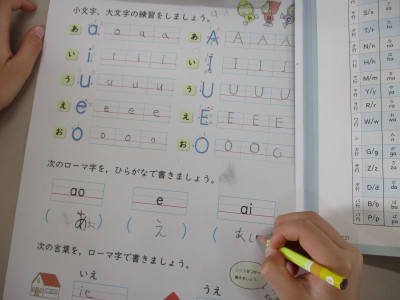 小文字、大文字の練習をしましょう。
あ a a a a あ A A A A
い i i i i い I I I I
う u u u u う U U U U
え e e e e え E E E E
お o o o o お O O O O
次のローマ字を、ひらがなで書きましょう。
ao e ai
( あお ) ( え ) ( あい
次の言葉を、ローマ字で書きましょう。
いえ うえ
ie
S/s
T/t
N/n
H/h
M/m
Y/y
R/r
W/w
G/g
Z/z
D/d
B/b
P/p